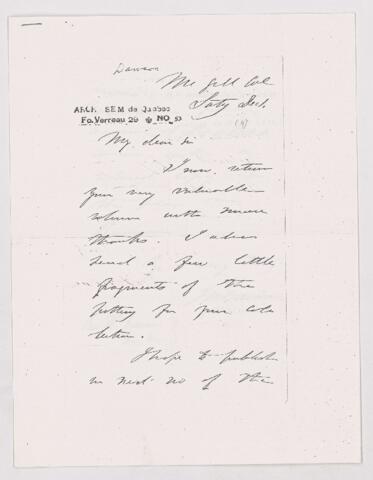 Dawson
Mc Gill Col
Saty Dec.
ARCH SEM de Quebec
Fo. Verreau 29 NO 53
My dear sir
I now return
your very valuable
volume with many
thanks. I also
send a few little
fragments of the
pottery for your col
lection.
I hope to publish
in next no of the